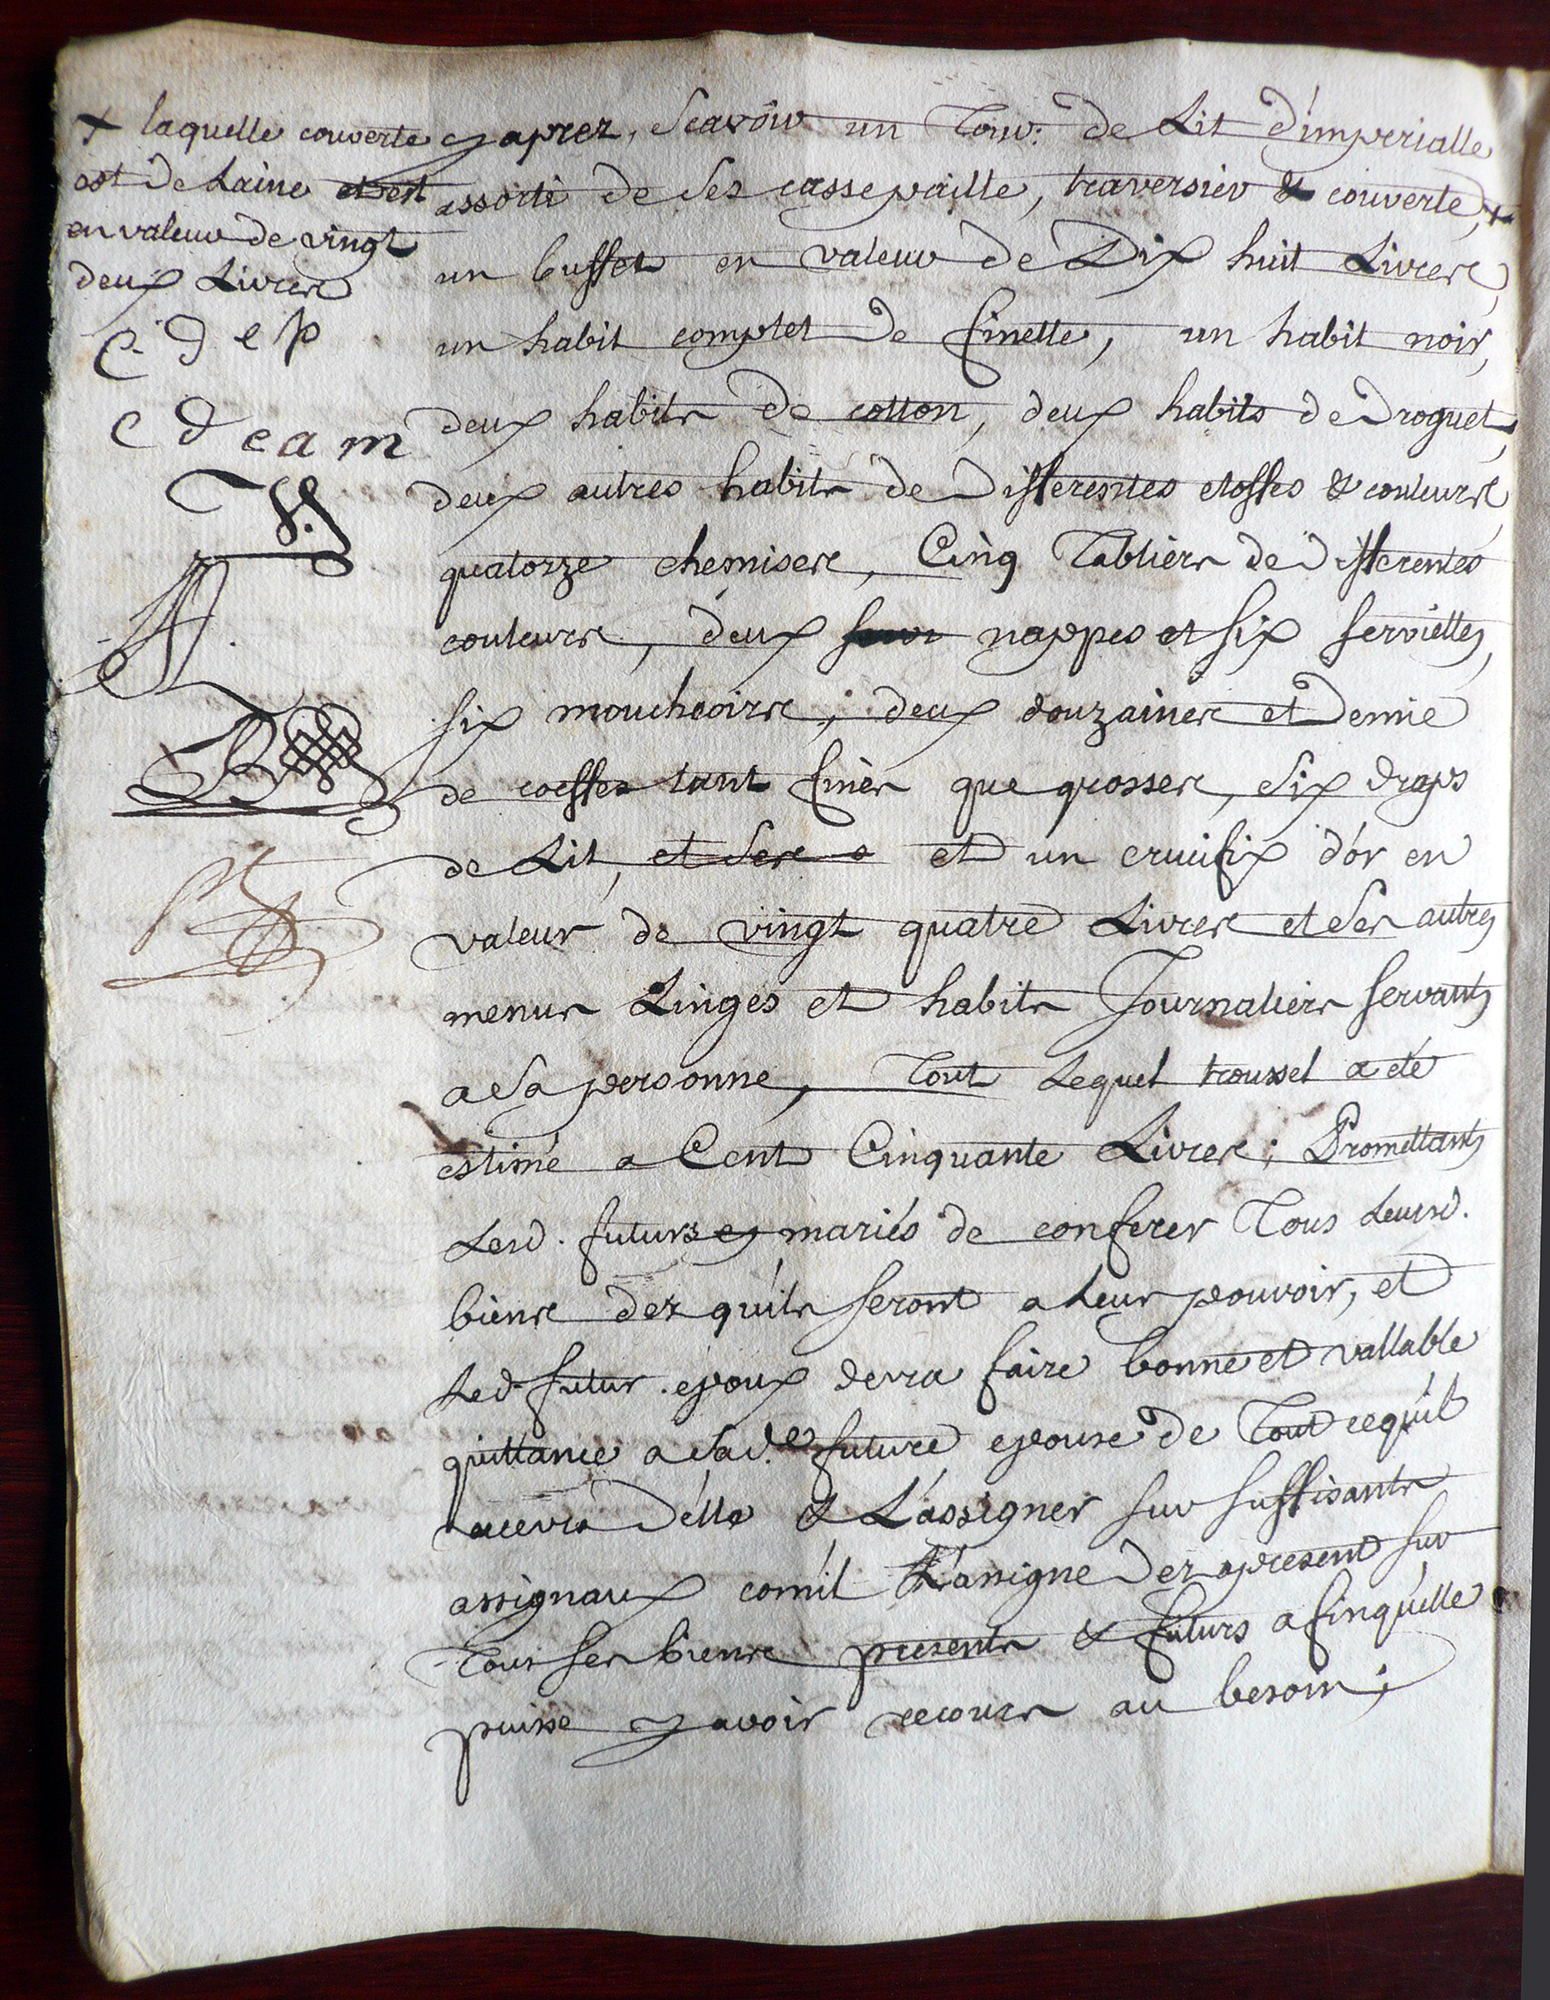 + laquelle couverte
est de Laine et est
en valeur de vingt
deux Livres
C. d e p
C d e a m
cy aprez, Scavoir un Tour de Lit d'imperialle
assorti de Ses cassepaille, traversier & couverte, +
un buffet en valeur de Dix huit Livres,
un habit complet de finette, un habit noir,
deux habits de cotton, deux habits de Droguet,
deux autres habits de Differentes etoffes & couleurs
quatorze chemises, Cinq Tabliers de Differentes
couleurs, deux nappes et six serviettes,
six mouchoirs, deux douzaines et Demie
de coeffes tant fines que grosses, Six draps
de Lit, et Ses et un crucifix d'or en
valeur de vingt quatre Livres et Ses autres
menus Linges et habits Journaliers servants
a Sa personne, Tout Lequel troussel a eté
estimé a Cent Cinquante Livres; Promettants
Lesd. futurs mariés de conferer Tous Leursd.
biens dez qu'ils seront a Leur pouvoir, et
Led. futur epoux devra faire bonne et vallable
quittance a Sad.e future epouse de Tout ce qu'il
recevra d'elle & L'assigner sur suffisants
assignaux com'il L'assigne Dez apresent sur
Tous ses biens presents & futurs afin qu'elle
puisse y avoir recours au besoin;